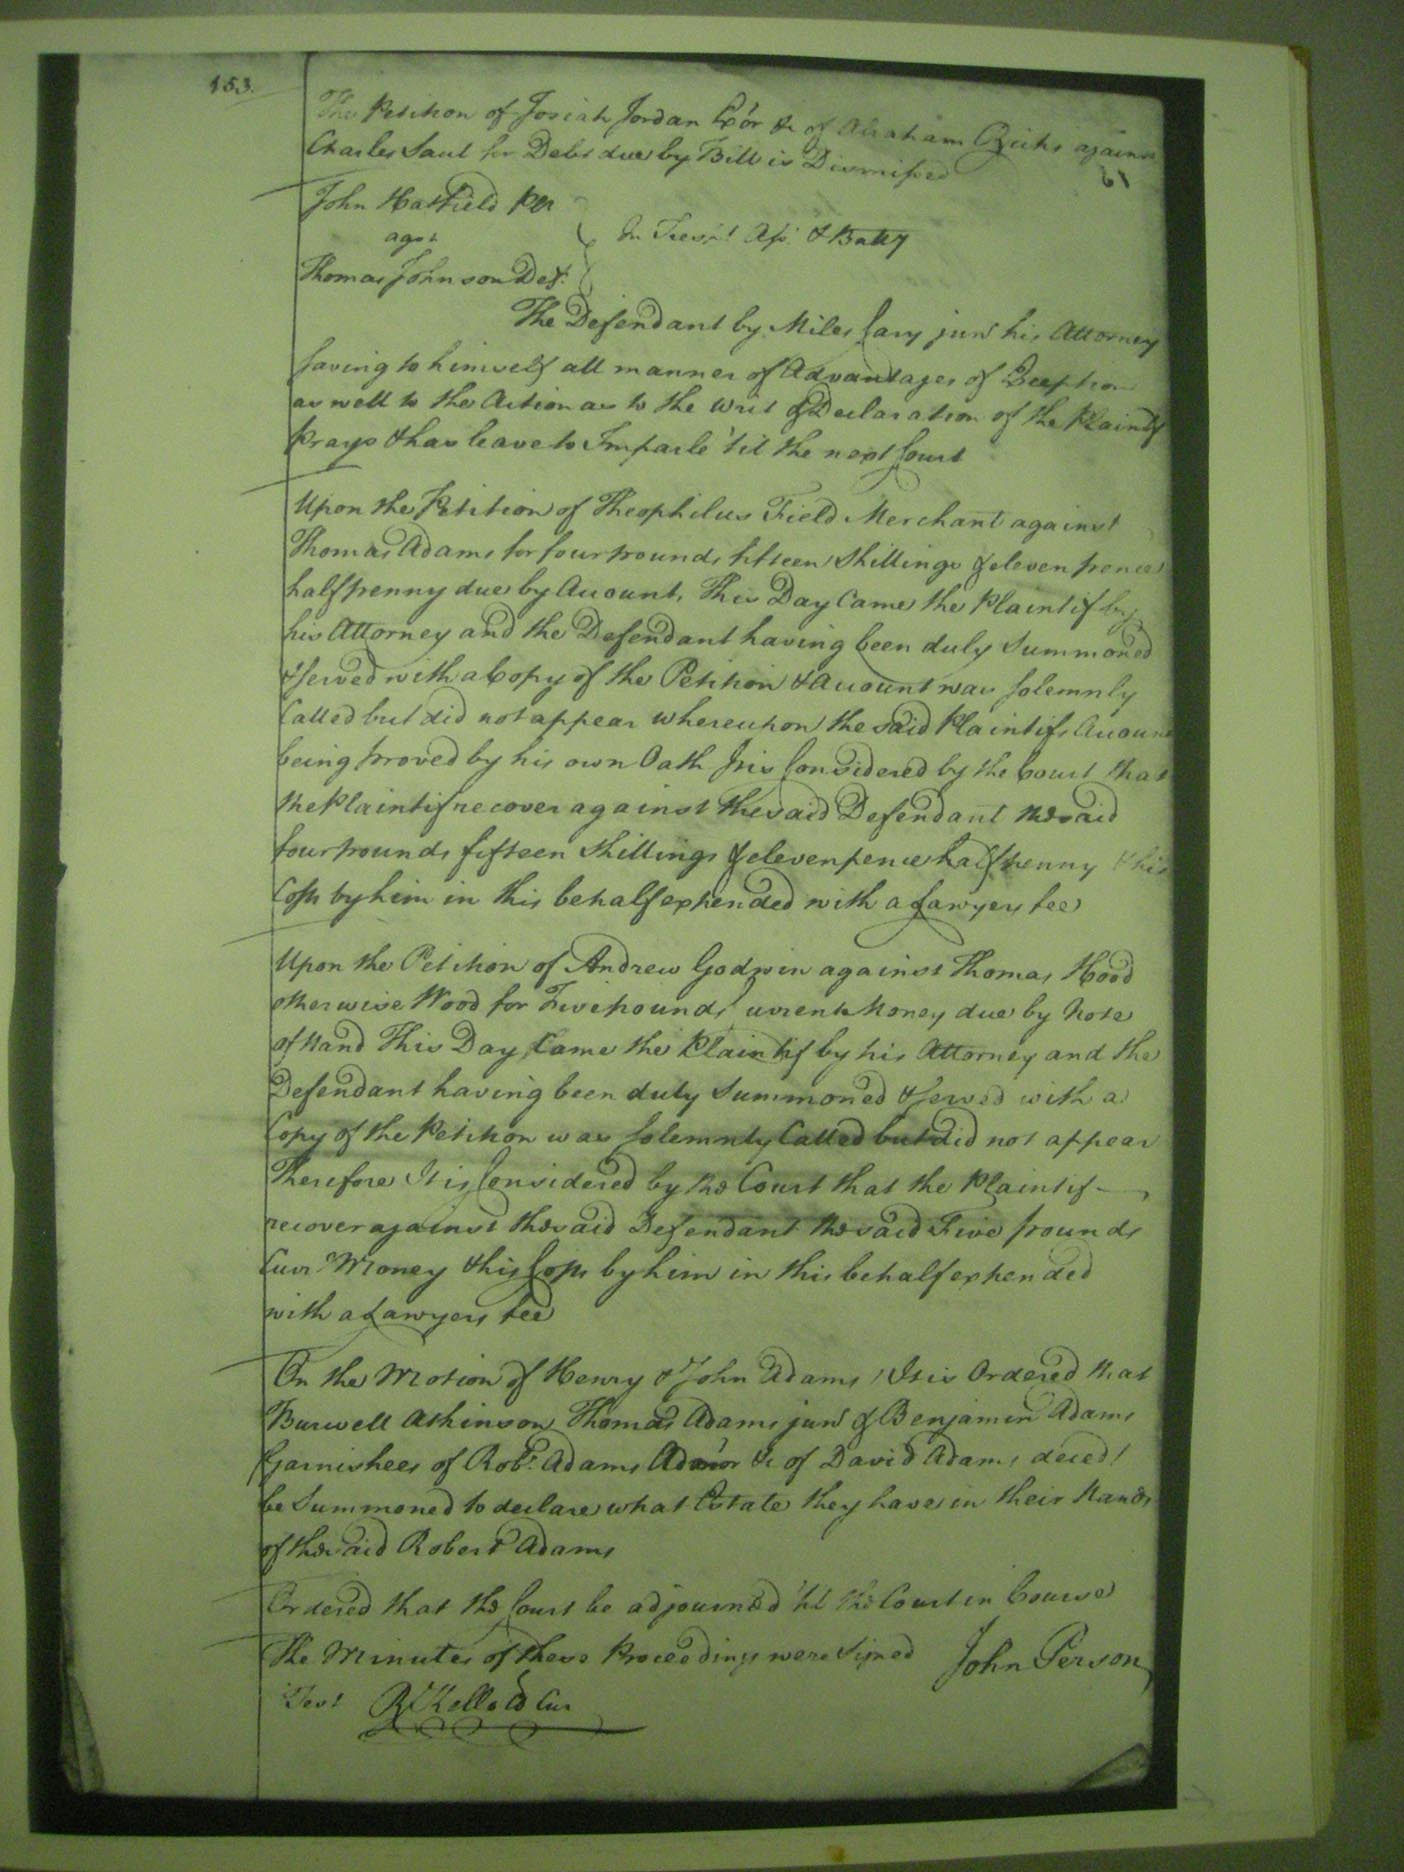 153.
The Petition of Josiah Jordan Exor &c of Abraham against
Charles Saul for Debt due by Bill is Dismissed
61
John Hatfield Plt
agst
Thomas Johnson Deft.
In Tresp.t Ass. & Batty
The Defendant by Miles Cary junr his Attorney
saving to himself all manner of Advantages of Exception
as well to the Action as to the writ & Declaration of the Plaintif
Prays & has leave to Imparle 'til the next Court
Upon the Petition of Theophilus Field Merchant against
Thomas Adams for four pounds fifteen Shillings & eleven pence
halfpenny due by Account, This Day Came the Plaintif by
his Attorney and the Defendant having been duly Summoned
& served with a Copy of the Petition & Account was solemnly
Called but did not appear whereupon the said Plaintifs Account
being proved by his own Oath It is Considered by the Court that
the Plaintif recover against the said Defendant the said
four pounds fifteen Shillings & eleven pence halfpenny & his
Costs by him in this behalf expended with a Lawyers fee
Upon the Petition of Andrew Godwin against Thomas Hood
otherwise Wood for Five pounds Current Money due by Note
of Hand This Day Came the Plaintif by his Attorney and the
Defendant having been duly Summoned & served with a
Copy of the Petition was solemnly Called but did not appear
Therefore It is Considered by the Court that the Plaintif
recover against the said Defendant the said Five pounds
Curr Money & his Costs by him in this behalf expended
with a Lawyers fee
On the Motion of Henry & John Adams, It is Ordered that
Burwell Atkinson Thomas Adams junr & Benjamin Adams
Garnishees of Robt. Adams Admor &c of David Adams decd.
be Summoned to declare what Estate they have in their Hands
of the said Robert Adams
Ordered that the Court be adjourned 'til the Court in Course
The Minutes of these Proceedings were Signed John Person
Test R Kello Cl Cur